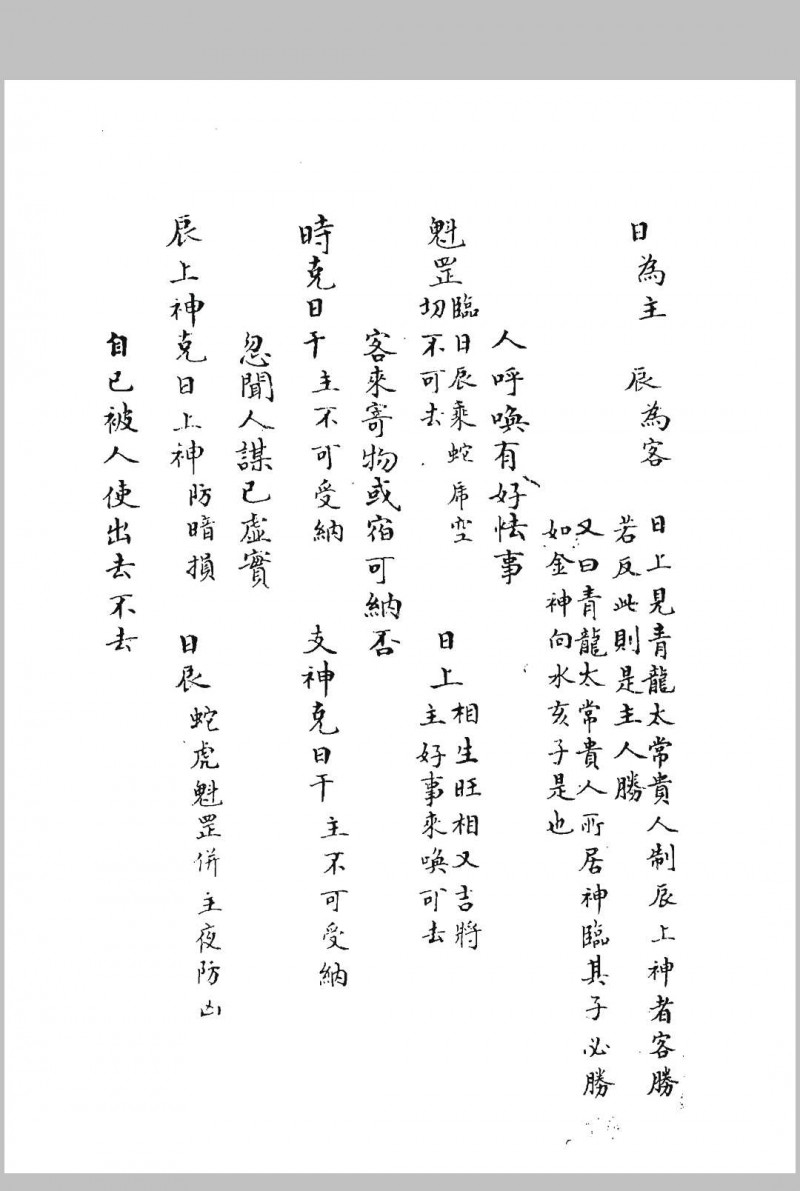 日為主　辰為客
日上見青龍太常貴人制辰上神者客勝
若反此則是主人勝
又曰青龍太常貴人所居神臨其子必勝
如金神向水亥子是也
人呼喚有好怯事
魁罡
臨日辰乘蛇虎空
切不可去
日上
相生旺相又吉將
主好事來喚可去
客來寄物或宿可納否
時克日干主不可受納
支神克日干主不可受納
忽聞人謀已虛實
辰上神克日上神防暗損
日辰蛇虎魁罡併主夜防凶
自已被人使出去不去